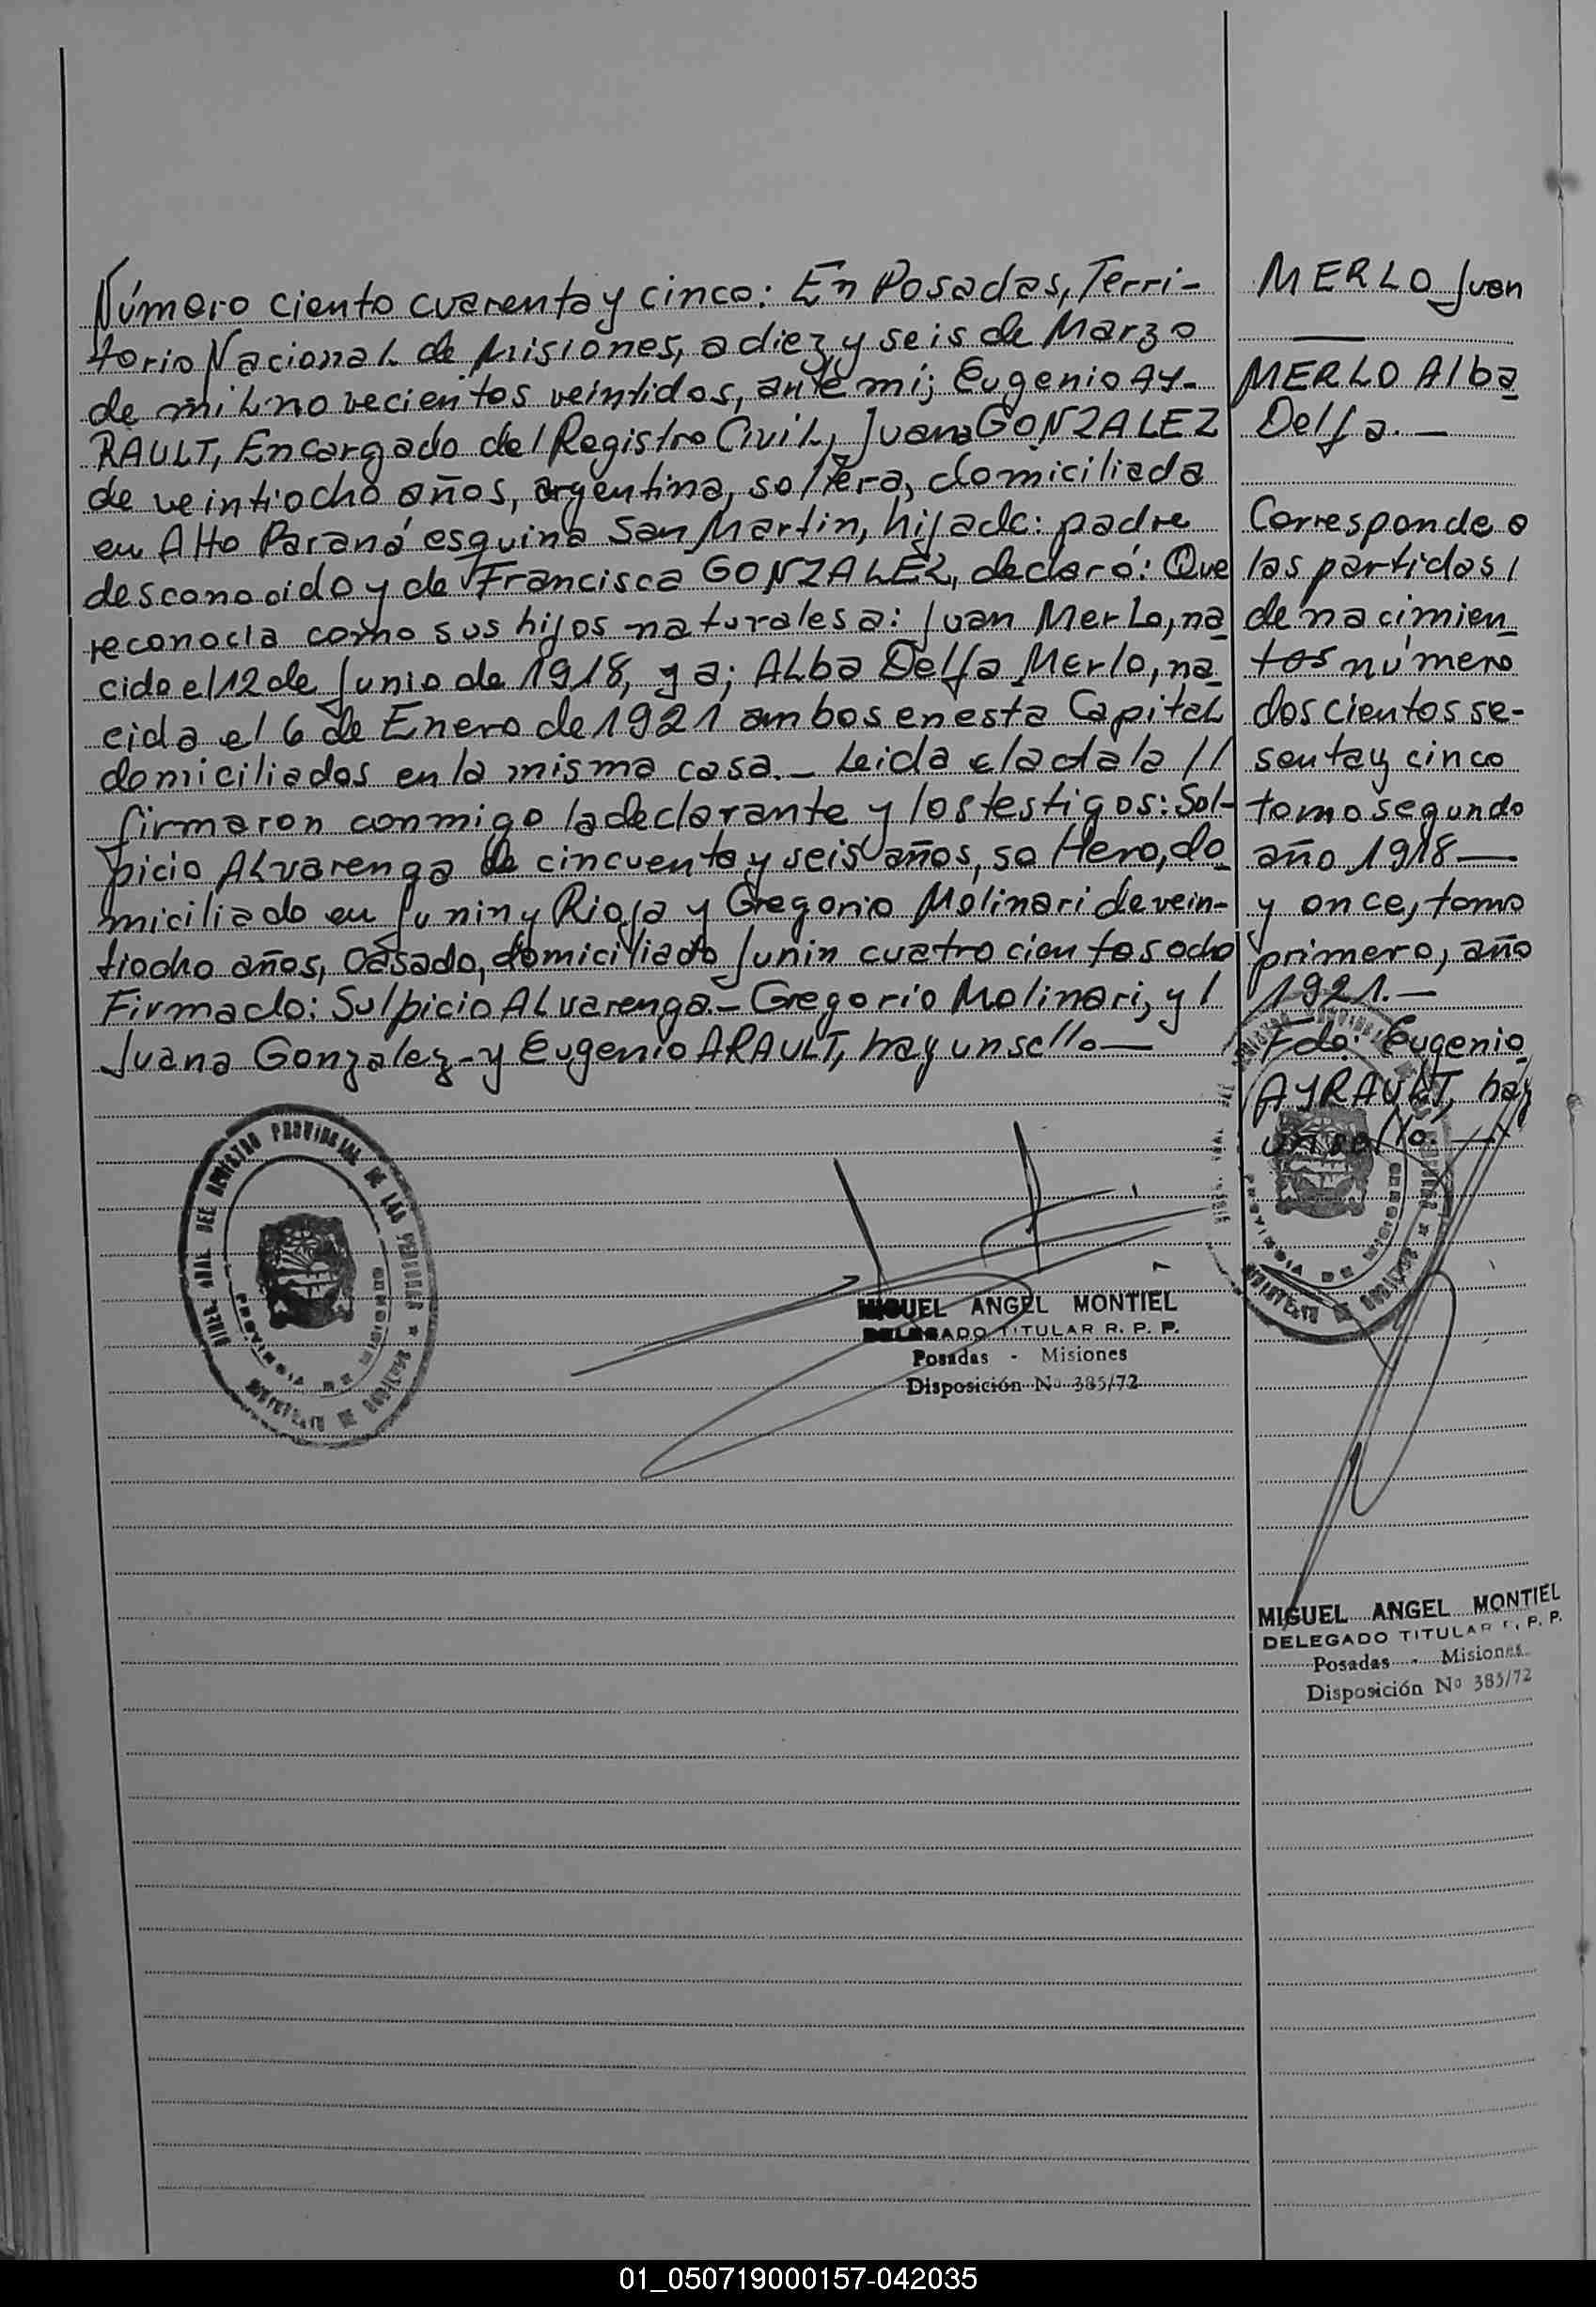 Número ciento cuarenta y cinco: En Posadas, Terri-
torio Nacional de Misiones, a diez y seis de Marzo
de mil novecientos veintidos, ante mí; Eugenio AY-
RAULT, Encargado del Registro Civil, Juana GONZALEZ
de veintiocho años, argentina, soltera, domiciliada
en Alto Paraná esquina San Martin, hija de: padre
desconocido y de Francisca GONZALEZ, declaró: Que
reconocia como sus hijos naturales a: Juan Merlo, na
cido el 12 de Junio de 1918, y a; Alba Delfa Merlo, na
cida el 6 de Enero de 1921 ambos en esta Capital
domiciliados en la misma casa.- Leida el acta la //
firmaron conmigo la declarante y los testigos: Sol-
picio Alvarenga de cincuenta y seis años, soltero, do
miciliado en Junin y Rioja y Gregorio Molinari de vein-
tiocho años, casado, domiciliado Junin cuatro cientos ocho
Firmado: Sulpicio Alvarenga.- Gregorio Molinari, y /
Juana Gonzalez - y Eugenio ARAULT, hay un sello —
DIREC. GRAL. DEL REGISTRO PROVINCIAL DE LAS PERSONAS ★
PROVINCIA DE MISIONES
MIGUEL ANGEL MONTIEL
DELEGADO TITULAR R. P. P.
Posadas - Misiones
Disposición Nº 385/72
MERLO Juan
MERLO Alba
Delfa.—
Corresponde a
las partidas /
de nacimien
tos número
doscientos se-
senta y cinco
tomo segundo
año 1918—
y once, tomo
primero, año
1921.—
Fdo: Eugenio
AYRAULT, hay
un sello.—
PROVINCIA DE MISIONES
MIGUEL ANGEL MONTIEL
DELEGADO TITULAR R. P. P.
Posadas - Misiones
Disposición Nº 385/72
01_050719000157-042035